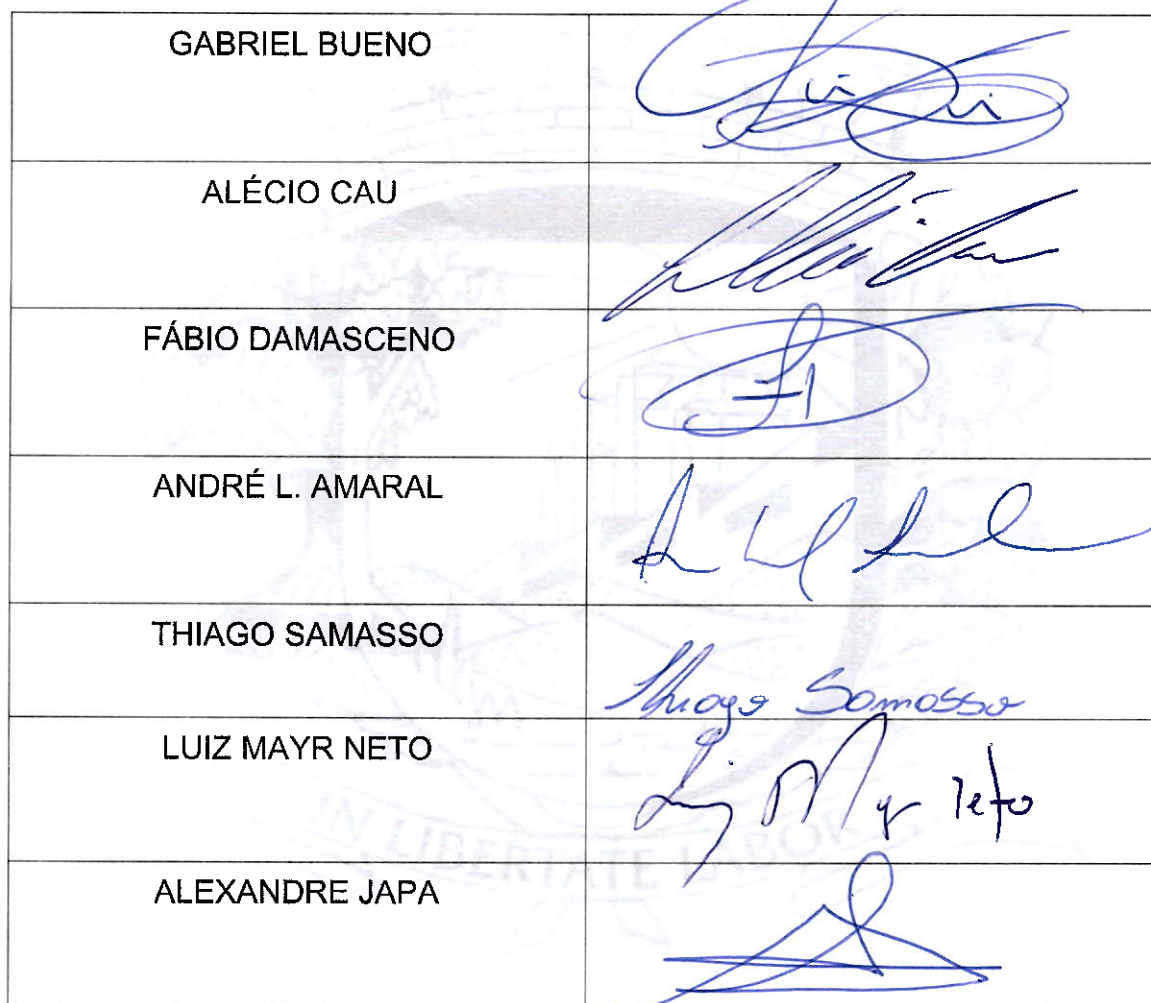 GABRIEL BUENO
ALÉCIO CAU
FÁBIO DAMASCENO
ANDRÉ L. AMARAL
THIAGO SAMASSO
Thiago Samasso
LUIZ MAYR NETO
Luiz Mayr Neto
IN LIBERTATE LABOR
ALEXANDRE JAPA